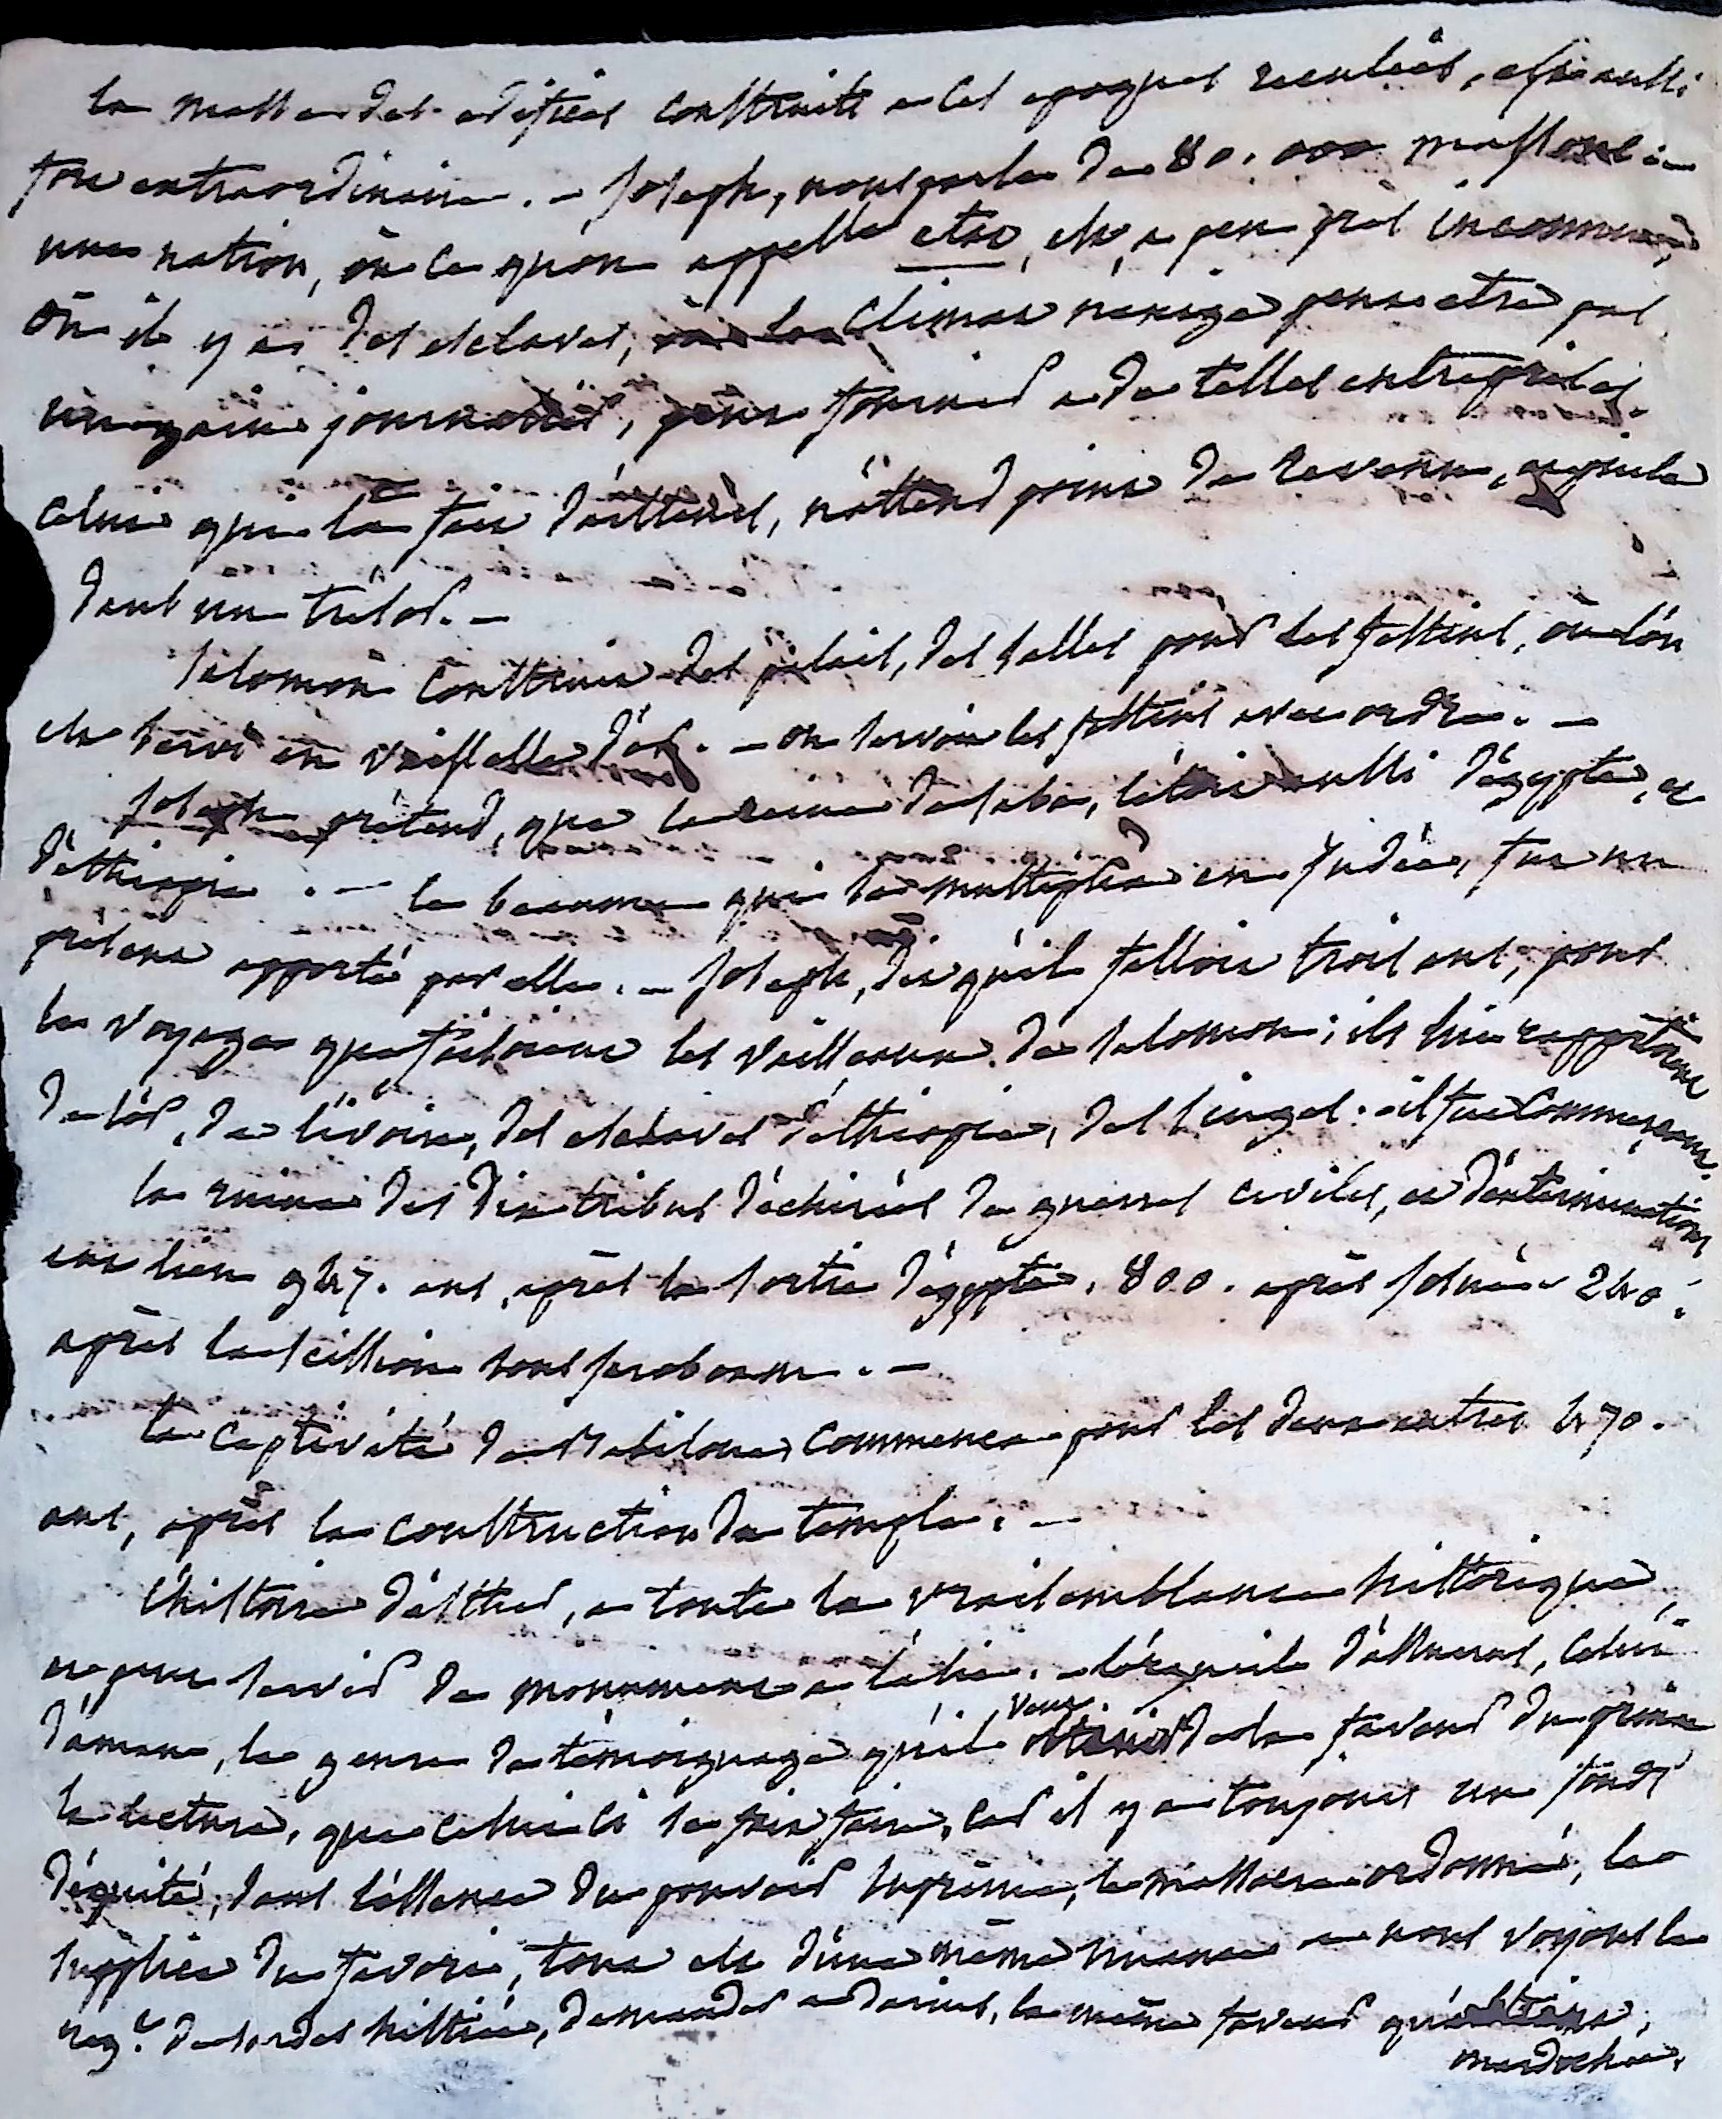 la masse des edifices construits a ces epoques reculées, est aussi
fort extraordinaire. - Joseph, nous parle de 80. 000 massons :
une nation, où ce qu'on appelle etat, est a peu près inconnu,
où il y a des esclaves, climat n'exige peut etre pas
un gain journalier, peut fournir a de telles entreprises.
celui qui la fait d'ailleurs, n'attend point de revenu, et puise
dans un trésor. -
Salomon construit des palais, des salles pour les festins, où l'on
est servi en vaisselle d'or. - on servoit les festins avec ordre. -
Joseph prétend, que la reine de saba, l'étoit aussi d'égypte, et
d'éthiopie. - le beaume qui se multiplia en Judée, fut un
présent apporté par elle. - Joseph, dit qu'il falloit trois ans, pour
le voyage que faisoient les vaisseaux de salomon ; ils lui rapportoient
de l'or, de l'ivoire, des esclaves d'éthiopie, des singes. il fut commerçant.
la ruine des dix tribus déchirées de guerres civiles, et d'extermination
eut lieu 947. ans, après la sortie d'égypte, 800. après Josué 240.
après la scission sous Jeroboam. -
la captivité de Babilone, commence pour les deux autres 470.
ans, après la construction du temple. -
l'histoire d'esther, a toute la vraisemblance historique,
et peut servir de monument a l'asie. - l'orgueil d'assuerus, celui
d'aman, le genre de témoignage qu'il veut de la faveur du prince
la lecture, que celui ci se fait faire, car il y a toujours un fonds
d'équité, dans l'essence du pouvoir suprême, le massacre ordonné, le
supplice du favori, tout est d'une même nuance - nous voyons la
demander a darius, la même faveur qu'obtient
mardochée.